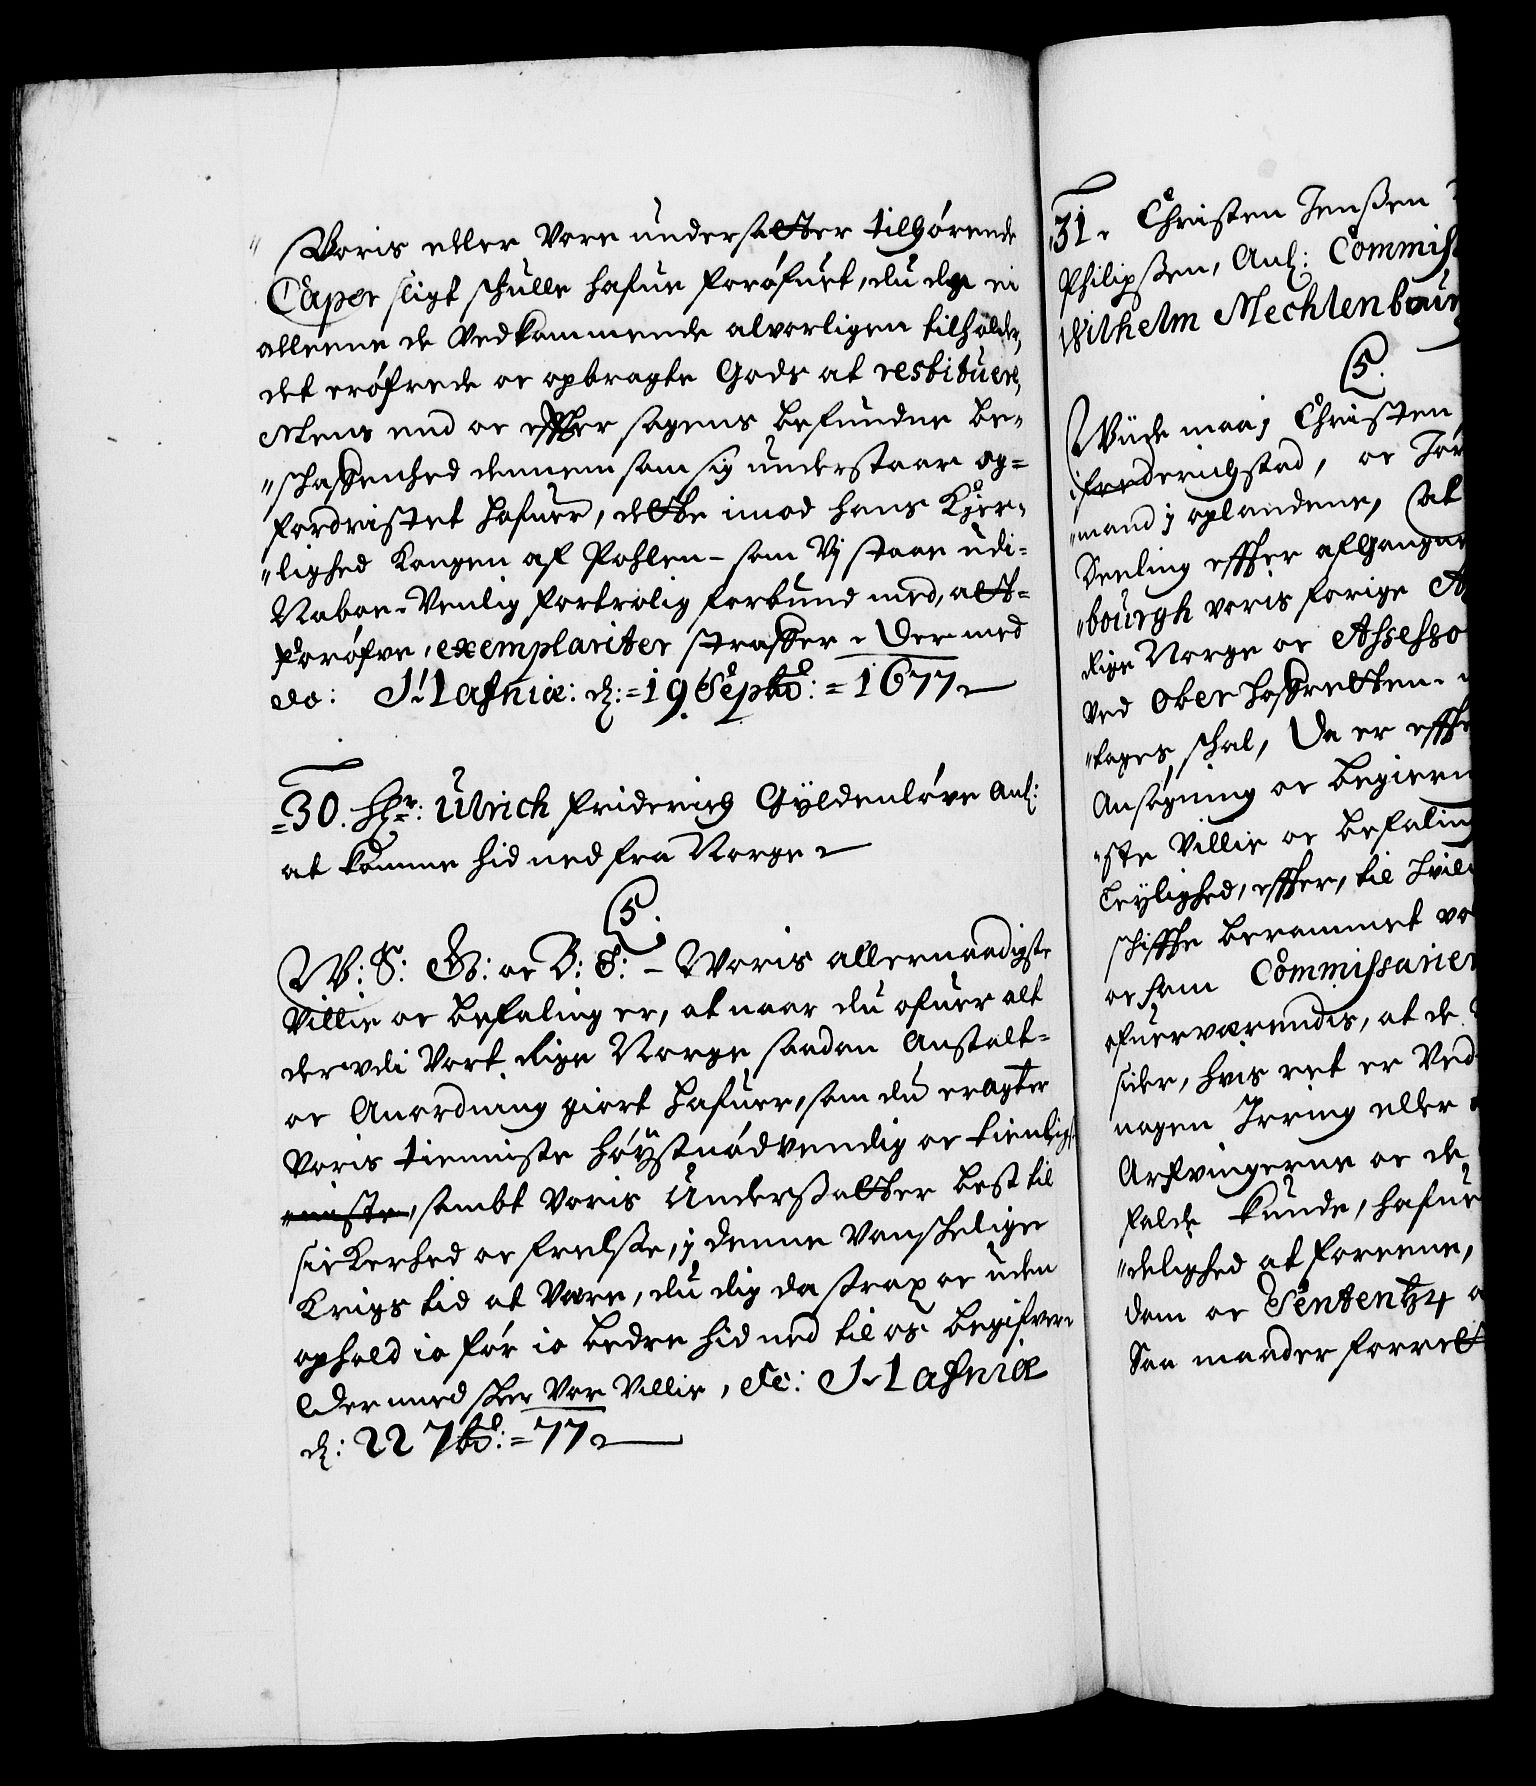 " Woris eller Vore undersatter tilhørende
Caper sligt schulle hafue forøfuet, du da ei
alleene de Vedkommende alvorligen tilholder,
det erøfrede oc opbragte Gods at restituere,
Mens end oc effter sagens befundne be-
"schaffenhed dennem som sig understaar og-
fordristet hafuer, dette imod hans Kjer-
"lighed Kongen af Pohlen - som Vj staar udi-
Naboe-Venlig fortrolig forbund med, att-
forøfve, exemplariter straffer. Der med
do: J. Hafniæ: d: =19 Septbr: =1677
=30. Hr: Ulrich Friderich Gÿldenløve Anl:
at komme hid ned fra Norge
5.
W: S: G: oc B: T: - Woris allernaadigste
Villie oc befaling er, at naar du ofuer alt
der vdi Vort Rige Norge saadan Anstalt-
oc Anordning giort hafuer, som du eragter
Voris tienniste høÿstnødvendig oc tienligst
sambt Voris Undersatter best til
sickerhed oc frelse, j denne Vanschelige
Krigs tid at Være, du dig da strax oc uden
ophold io før io bedre hid ned til os begifver.
Dermed scher Vor Villie, Etc: J. Hafniæ
d: 22 7br: =77
31. Christen Jenßen
Philipsen, Anl: Commiss
Wilhelm Mechlenbour
5.
Wiide maa j Christen
Frederichstad, oc Jør
"mand j oplandene, at
Seeling effter afgangne
"bourgh voris forige A
Rige Norge oc Assesso
Ved Ober Hoffretten
"tages schal, Da er effte
Ansøgning oc begiering
"ste Villie oc befaling
leÿlighed, effter, til hvilc
schiffte berammet vo
oc som Commissarier
ofuerværendis, at de
sider, hvis ret er Ved
nogen Irring eller
Arfvingerne oc de
falde kunde, hafuer
"delighed at foreene,
dom oc Sententz
Saa maader forrett